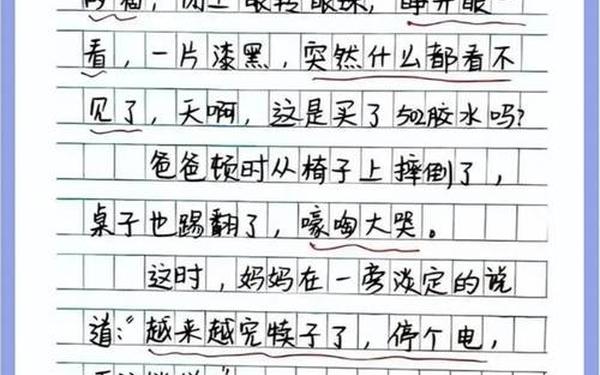 滴，闭上眼转眼珠，睁开眼一
看，一片漆黑，突然什么都看不
见了，天啊，这是买了502胶水吗?
爸爸顿时从椅子上摔倒了，
桌子也踢翻了，嚎啕大哭。
这时，妈妈在一旁淡定的说
道：“越来越完犊子了，停个电，